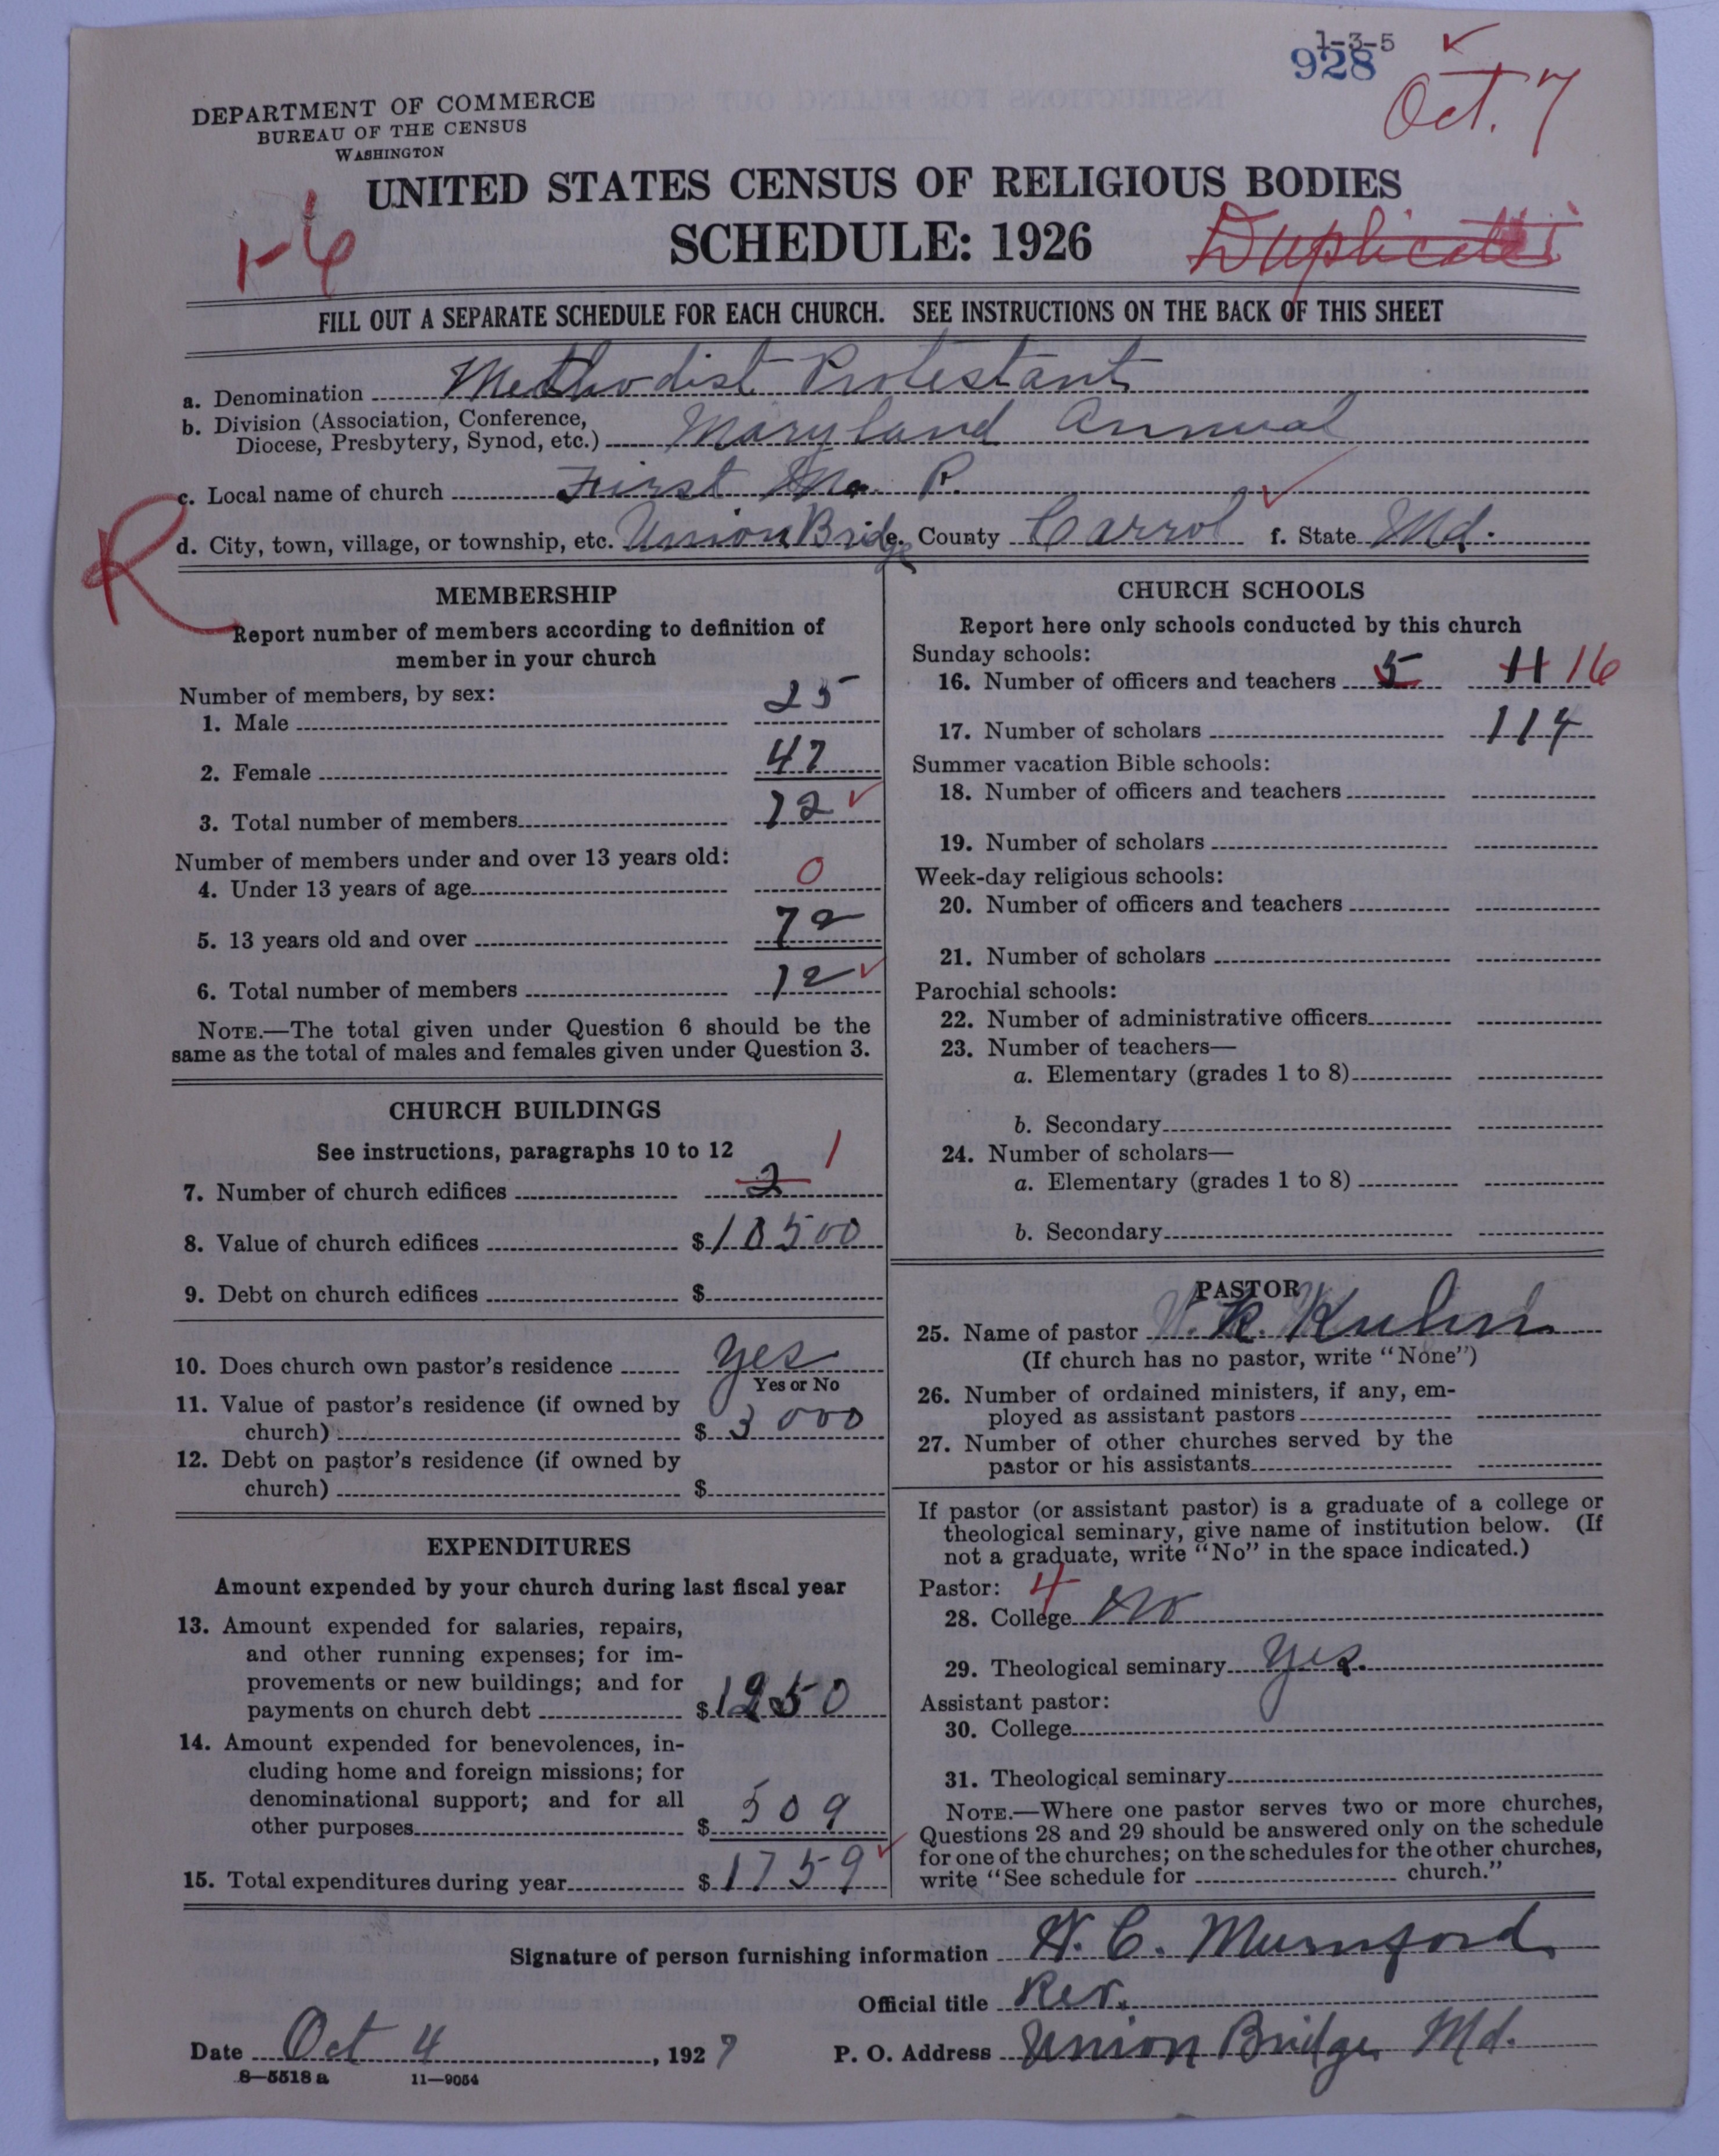 1-3-5
928
Oct. 7
DEPARTMENT OF COMMERCE
BUREAU OF THE CENSUS
WASHINGTON
UNITED STATES CENSUS OF RELIGIOUS BODIES
1-6
SCHEDULE: 1926
Duplicate
FILL OUT A SEPARATE SCHEDULE FOR EACH CHURCH. SEE INSTRUCTIONS ON THE BACK OF THIS SHEET
a. Denomination Methodist Protestant
b. Division (Association, Conference,
Diocese, Presbytery, Synod, etc.) Maryland Annual
c. Local name of church First M. P.
d. City, town, village, or township, etc. Union Bridge e. County Carrol f. State Md.
R
MEMBERSHIP
Report number of members according to definition of
member in your church
Number of members, by sex:
1. Male 25
2. Female 47
3. Total number of members 72
Number of members under and over 13 years old:
4. Under 13 years of age 0
5. 13 years old and over 72
6. Total number of members 72
NOTE.—The total given under Question 6 should be the
same as the total of males and females given under Question 3.
CHURCH BUILDINGS
See instructions, paragraphs 10 to 12
7. Number of church edifices 2 1
8. Value of church edifices $10500
9. Debt on church edifices $
10. Does church own pastor's residence yes
Yes or No
11. Value of pastor's residence (if owned by
church) $3000
12. Debt on pastor's residence (if owned by
church) $
EXPENDITURES
Amount expended by your church during last fiscal year
13. Amount expended for salaries, repairs,
and other running expenses; for im-
provements or new buildings; and for
payments on church debt $1250
14. Amount expended for benevolences, in-
cluding home and foreign missions; for
denominational support; and for all
other purposes $509
15. Total expenditures during year $1759
CHURCH SCHOOLS
Report here only schools conducted by this church
Sunday schools:
16. Number of officers and teachers 5 11 16
17. Number of scholars 114
Summer vacation Bible schools:
18. Number of officers and teachers
19. Number of scholars
Week-day religious schools:
20. Number of officers and teachers
21. Number of scholars
Parochial schools:
22. Number of administrative officers
23. Number of teachers—
a. Elementary (grades 1 to 8)
b. Secondary
24. Number of scholars—
a. Elementary (grades 1 to 8)
b. Secondary
PASTOR
25. Name of pastor K. Kuhn
(If church has no pastor, write "None")
26. Number of ordained ministers, if any, em-
ployed as assistant pastors
27. Number of other churches served by the
pastor or his assistants
If pastor (or assistant pastor) is a graduate of a college or
theological seminary, give name of institution below. (If
not a graduate, write "No" in the space indicated.)
Pastor: 4
28. College No
29. Theological seminary yes.
Assistant pastor:
30. College
31. Theological seminary
NOTE.—Where one pastor serves two or more churches,
Questions 28 and 29 should be answered only on the schedule
for one of the churches; on the schedules for the other churches,
write "See schedule for church."
Signature of person furnishing information H. C. Mumford
Official title Rev.
Date Oct 4, 1927 P. O. Address Union Bridge Md.
8—5518 a 11—9054